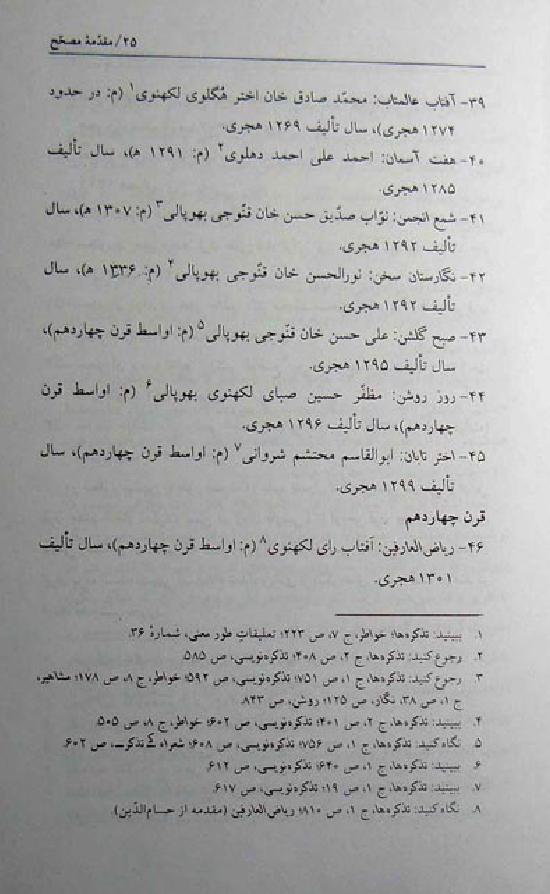 ۲۵/مقدّمهٔ مصحّح
۳۹- آفتاب عالمتاب: محمّد صادق خان اختر هُگلوی لکهنوی۱ (م: در حدود
۱۲۷۴ هجری)، سال تألیف ۱۲۶۹ هجری.
۴۰- هفت آسمان: احمد علی احمد دهلوی۲ (م: ۱۲۹۱ ه)، سال تألیف
۱۲۸۵ هجری.
۴۱- شمع انجمن: نوّاب صدّیق حسن خان قنّوجی بهوپالی۳ (م: ۱۳۰۷ ه)، سال
تألیف ۱۲۹۲ هجری.
۴۲- نگارستان سخن: نورالحسن خان قنّوجی بهوپالی۴ (م: ۱۳۳۶ ه)، سال
تألیف ۱۲۹۲ هجری.
۴۳- صبح گلشن: علی حسن خان قنّوجی بهوپالی۵ (م: اواسط قرن چهاردهم)،
سال تألیف ۱۲۹۵ هجری.
۴۴- روز روشن: مظفّر حسین صبای لکهنوی بهوپالی۶ (م: اواسط قرن
چهاردهم)، سال تألیف ۱۲۹۶ هجری.
۴۵- اختر تابان: ابوالقاسم محتشم شروانی۷ (م: اواسط قرن چهاردهم)، سال
تألیف ۱۲۹۹ هجری.
قرن چهاردهم
۴۶- ریاض‌العارفین: آفتاب رای لکهنوی۸ (م: اواسط قرن چهاردهم)، سال تألیف
۱۳۰۱ هجری.
۱. ببینید: تذکره‌ها؛ خواطر، ج ۷، ص ۲۲۳؛ تعلیقاتِ طور معنی، شمارهٔ ۳۶.
۲. رجوع کنید: تذکره‌ها، ج ۲، ص ۴۰۸؛ تذکره‌نویسی، ص ۵۸۵.
۳. رجوع کنید: تذکره‌ها، ج ۱، ص ۷۵۱؛ تذکره‌نویسی، ص ۵۹۲؛ خواطر، ج ۸، ص ۱۷۸؛ مشاهیر،
ج ۱، ص ۳۸، نگار، ص ۱۲۵؛ روشن، ص ۸۴۳.
۴. ببینید: تذکره‌ها، ج ۲، ص ۴۰۱؛ تذکره‌نویسی، ص ۶۰۲؛ خواطر، ج ۸، ص ۵۰۵.
۵. نگاه کنید: تذکره‌ها، ج ۱، ص ۷۵۶؛ تذکره‌نویسی، ص ۶۰۸؛ شعراء کے تذکرے، ص ۶۰۲.
۶. ببینید: تذکره‌ها، ج ۱، ص ۶۴۰؛ تذکره‌نویسی، ص ۶۱۲.
۷. ببینید: تذکره‌ها، ج ۱، ص ۱۹؛ تذکره‌نویسی، ص ۶۱۷.
۸. نگاه کنید: تذکره‌ها، ج ۱، ص ۸۱۰؛ ریاض‌العارفین (مقدمه از حسام‌الدّین).